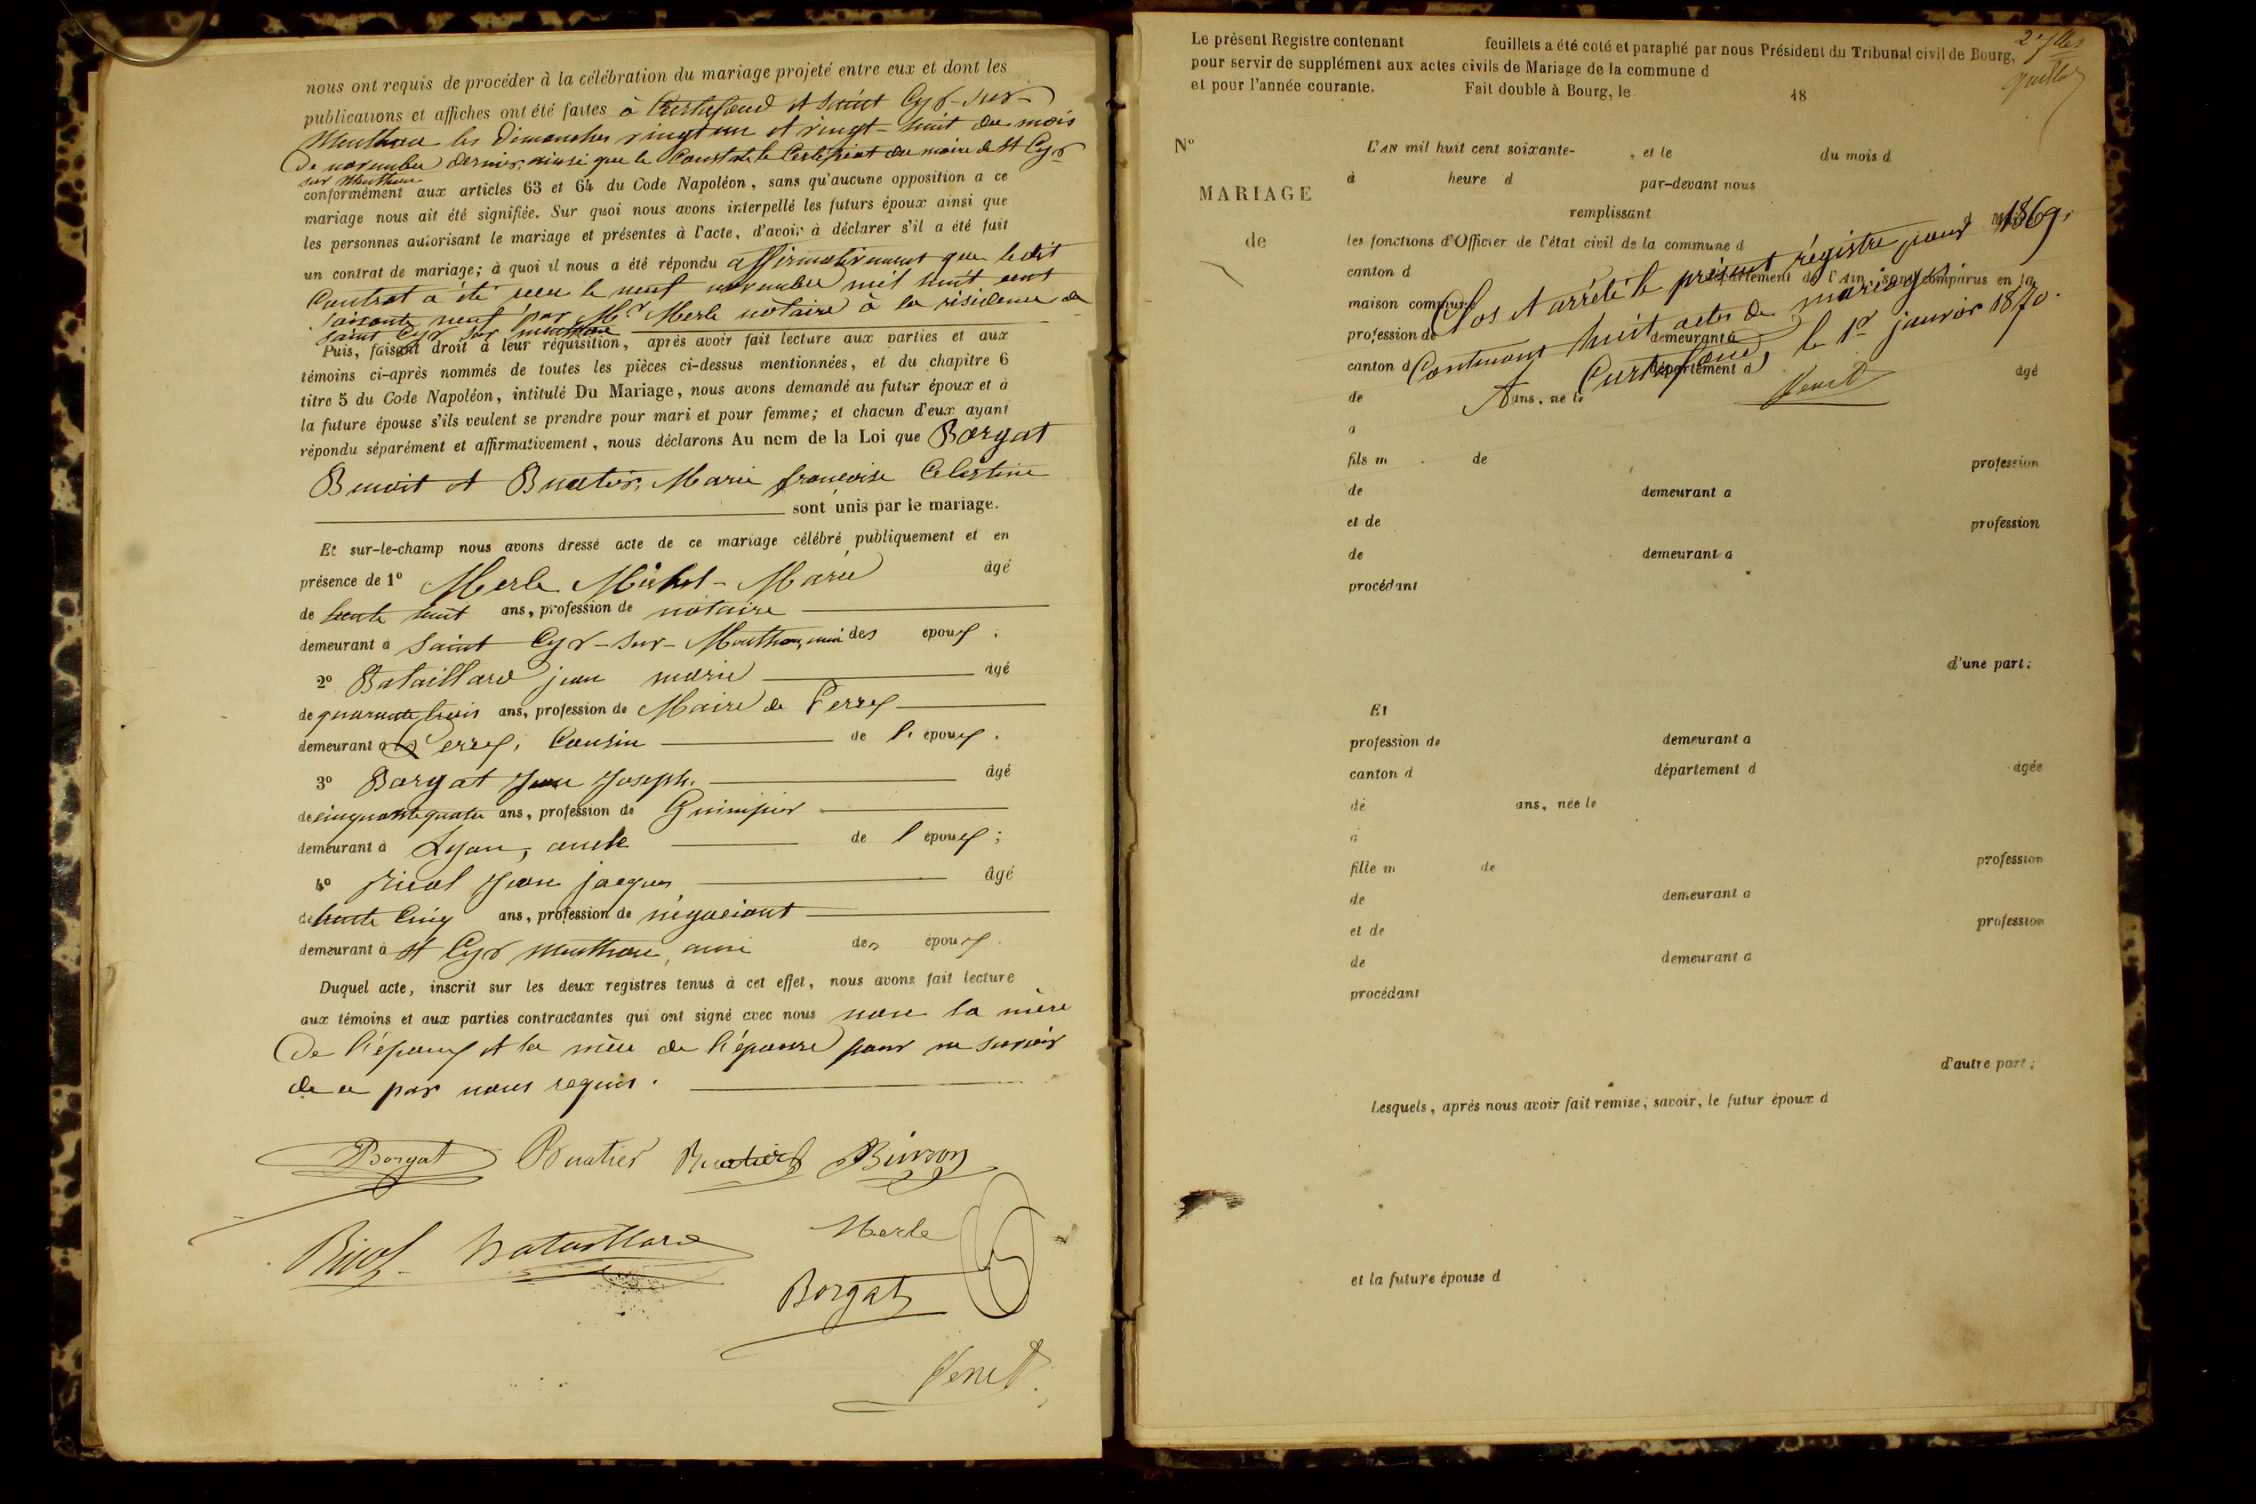 nous ont requis de procéder à la célébration du mariage projeté entre eux et dont les
publications et affiches ont été faites à Curtafond et Saint Cyr-sur-
Menthon les Dimanches vingt un et vingt-huit du mois
De novembre dernier, ainsi que le Constate le Certificat du maire de St Cyr
sur Menthon
conformément aux articles 63 et 64 du Code Napoléon, sans qu'aucune opposition a ce
mariage nous ait été signifiée. Sur quoi nous avons interpellé les futurs époux ainsi que
les personnes autorisant le mariage et présentes à l'acte, d'avoir à déclarer s'il a été fait
un contrat de mariage; à quoi il nous a été répondu affirmativement que le dit
Contrat a été reçu le neuf novembre mil huit cent
soixante neuf par Mr Merle notaire à la résidence de
saint Cyr sur menthon
Puis, faisant droit à leur réquisition, après avoir fait lecture aux parties et aux
témoins ci-après nommés de toutes les pièces ci-dessus mentionnées, et du chapitre 6
titre 5 du Code Napoléon, intitulé Du Mariage, nous avons demandé au futur époux et à
la future épouse s'ils veulent se prendre pour mari et pour femme; et chacun d'eux ayant
répondu séparément et affirmativement, nous déclarons Au nom de la Loi que Borgat
Benoit et Buatier, Marie françoise Celestine
sont unis par le mariage.
Et sur-le-champ nous avons dressé acte de ce mariage célébré publiquement et en
présence de 1° Merle Michel-Marie âgé
de trente huit ans, profession de notaire
demeurant a Saint Cyr-sur-Menthon, ami des epoux.
2° Bataillard jean marie âgé
de quarante trois ans, profession de Maire de Perrex
demeurant a Perrex, Cousin de l' epoux.
3° Borgat Jean Joseph. âgé
de cinquante quatre ans, profession de Guimpier
demeurant à Lyon, oncle de l epoux;
4° Rival Jean jacques âgé
de trente Cinq ans, profession de négociant
demeurant à St Cyr Menthon, ami des epoux.
Duquel acte, inscrit sur les deux registres tenus à cet effet, nous avons fait lecture
aux témoins et aux parties contractantes qui ont signé avec nous non la mère
De l'époux et la mère de l'épouse pour ne savoir
de ce par nous requis.
Borgat Buatier Buatier
Bataillard Merle
Borgat
Venet.
Le présent Registre contenant feuillets a été coté et paraphé par nous Président du Tribunal civil de Bourg,
pour servir de supplément aux actes civils de Mariage de la commune d
et pour l'année courante. Fait double à Bourg, le 18
N°
MARIAGE
de
L'an mil huit cent soixante- , et le du mois d
à heure d par-devant nous
remplissant
les fonctions d'Officier de l'état civil de la commune d
canton d département de l'Ain, sont comparus en la
maison commune
profession de demeurant à
canton d département d âgé
de ans, né le
Clos et arrêté le présent régistre pour 1869.
Contenant huit actes de mariages.
A Curtafond, le 1er janvier 1870.
Venet
a
fils m de profession
de demeurant a
et de profession
de demeurant a
procédant
d'une part;
Et
profession de demeurant a
canton d département d âgée
de ans, née le
a
fille m de profession
de demeurant a
et de profession
de demeurant a
procédant
d'autre part;
Lesquels, après nous avoir fait remise, savoir, le futur époux d
et la future épouse d